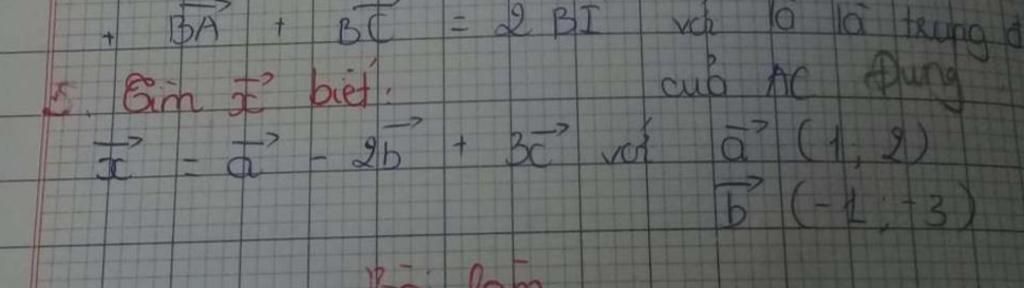 + BA + BC = 2 BI với O là trung đ
của AC Đúng
5. Tìm x biết:
x = a - 2b + 3c với a (1; 2)
b (-1; -3)